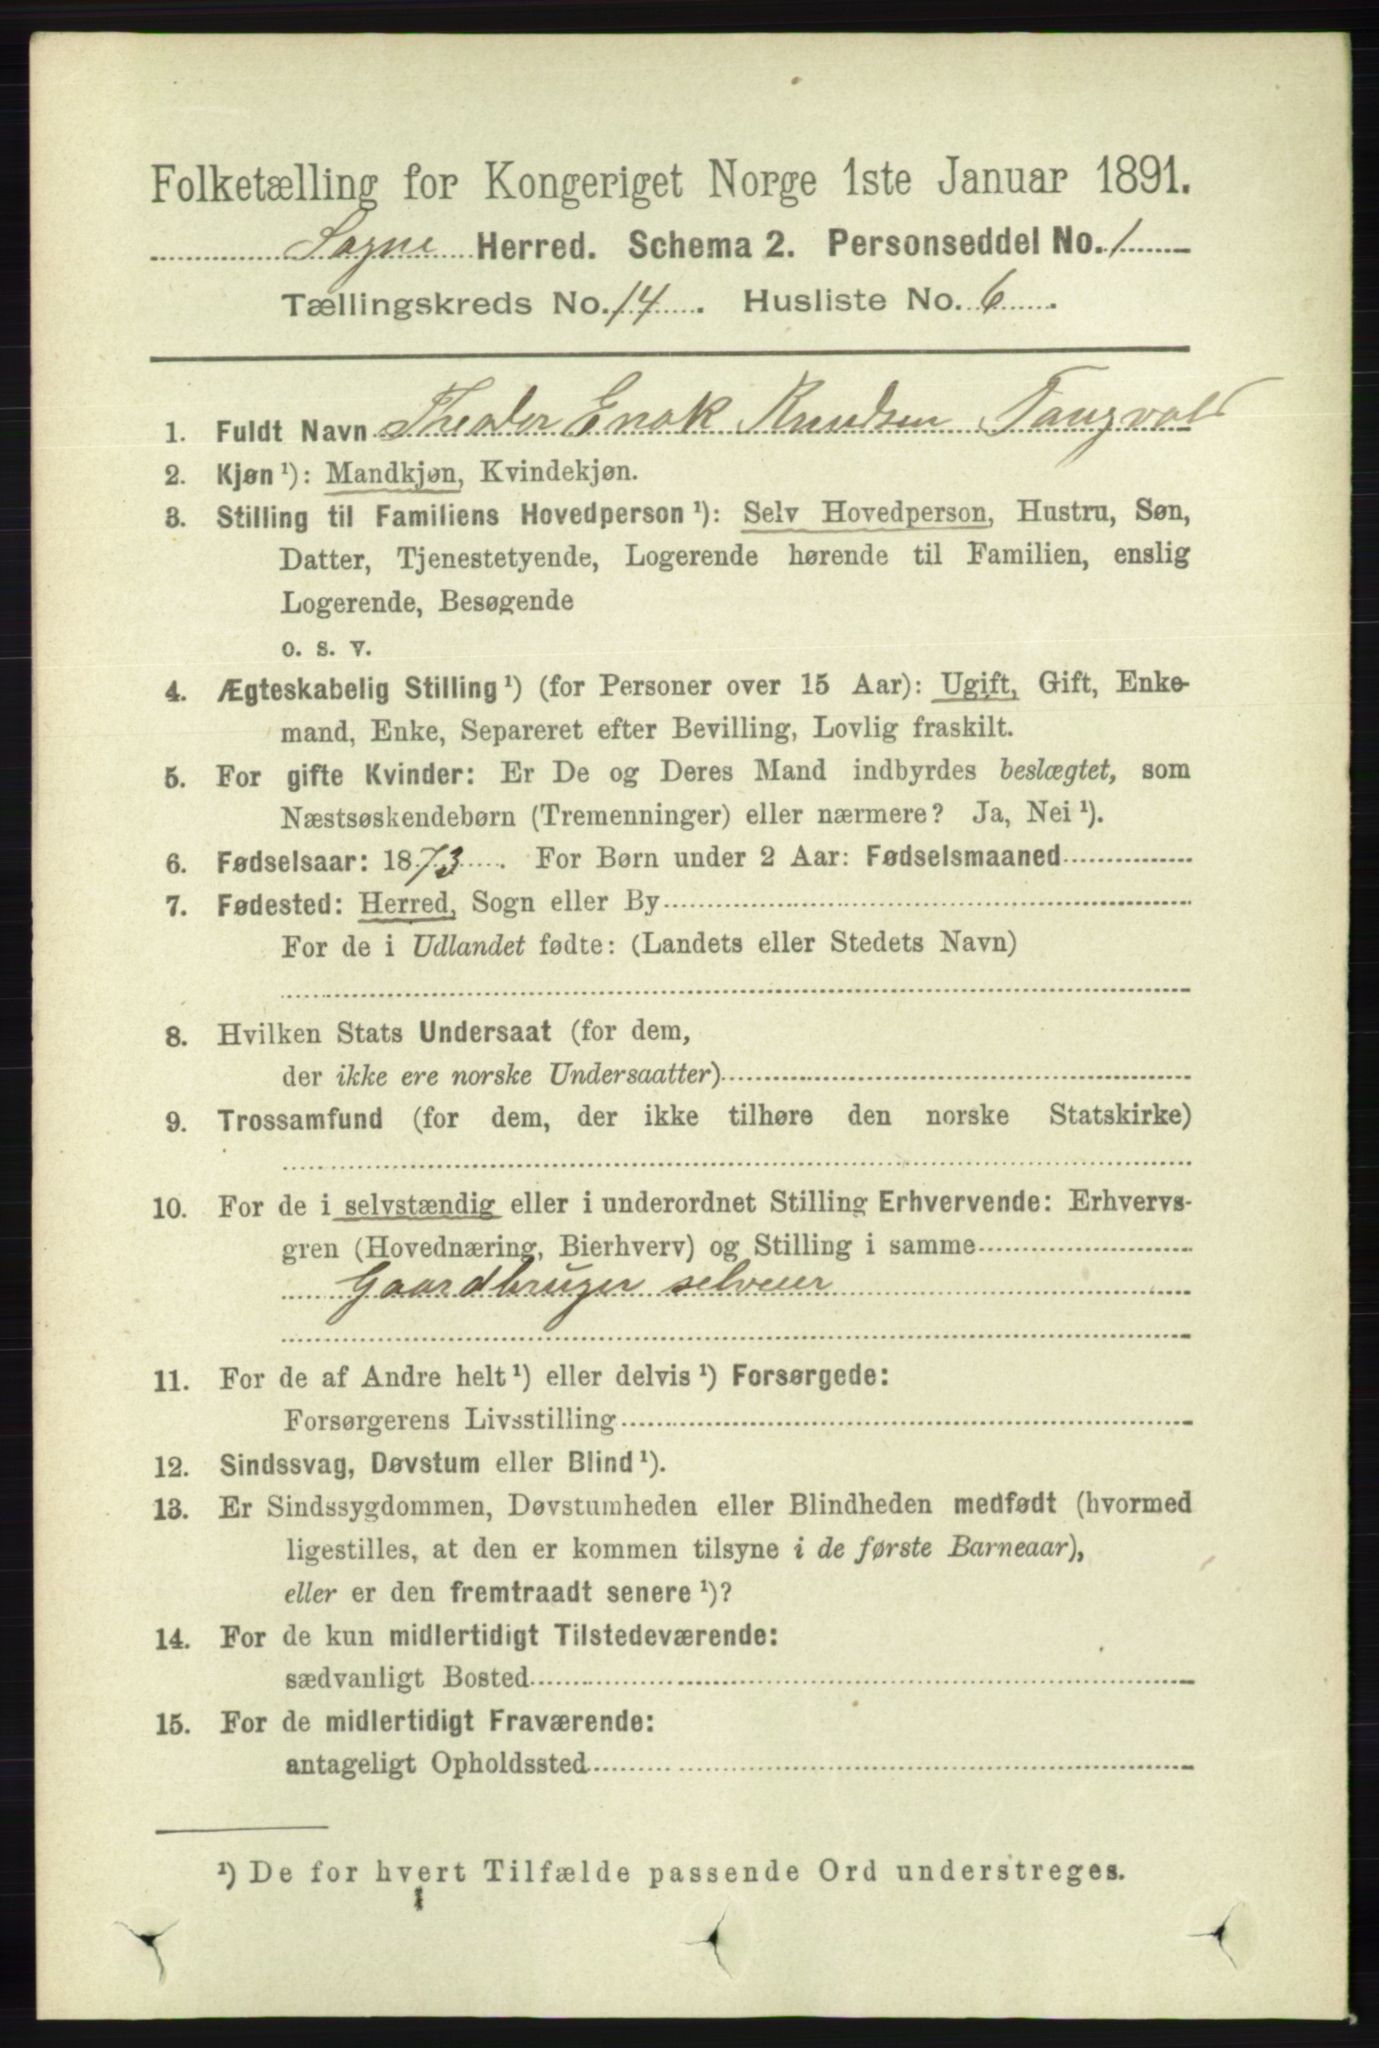 Folketælling for Kongeriget Norge 1ste Januar 1891.
Søgne Herred. Schema 2. Personseddel No. 1
Tællingskreds No. 14. Husliste No. 6.
1. Fuldt Navn Theodor Enok Knudsen Tangvald
2. Kjøn ¹): Mandkjøn, Kvindekjøn.
3. Stilling til Familiens Hovedperson ¹): Selv Hovedperson, Hustru, Søn,
Datter, Tjenestetyende, Logerende hørende til Familien, enslig
Logerende, Besøgende
o. s. v.
4. Ægteskabelig Stilling ¹) (for Personer over 15 Aar): Ugift, Gift, Enke-
mand, Enke, Separeret efter Bevilling, Lovlig fraskilt.
5. For gifte Kvinder: Er De og Deres Mand indbyrdes beslægtet, som
Næstsøskendebørn (Tremenninger) eller nærmere? Ja, Nei ¹).
6. Fødselsaar: 1873. For Børn under 2 Aar: Fødselsmaaned
7. Fødested: Herred, Sogn eller By
For de i Udlandet fødte: (Landets eller Stedets Navn)
8. Hvilken Stats Undersaat (for dem,
der ikke ere norske Undersaatter)
9. Trossamfund (for dem, der ikke tilhøre den norske Statskirke)
10. For de i selvstændig eller i underordnet Stilling Erhvervende: Erhvervs-
gren (Hovednæring, Bierhverv) og Stilling i samme
Gaardbruger selveier
11. For de af Andre helt ¹) eller delvis ¹) Forsørgede:
Forsørgerens Livsstilling
12. Sindssvag, Døvstum eller Blind ¹).
13. Er Sindssygdommen, Døvstumheden eller Blindheden medfødt (hvormed
ligestilles, at den er kommen tilsyne i de første Barneaar),
eller er den fremtraadt senere ¹)?
14. For de kun midlertidigt Tilstedeværende:
sædvanligt Bosted
15. For de midlertidigt Fraværende:
antageligt Opholdssted
¹) De for hvert Tilfælde passende Ord understreges.